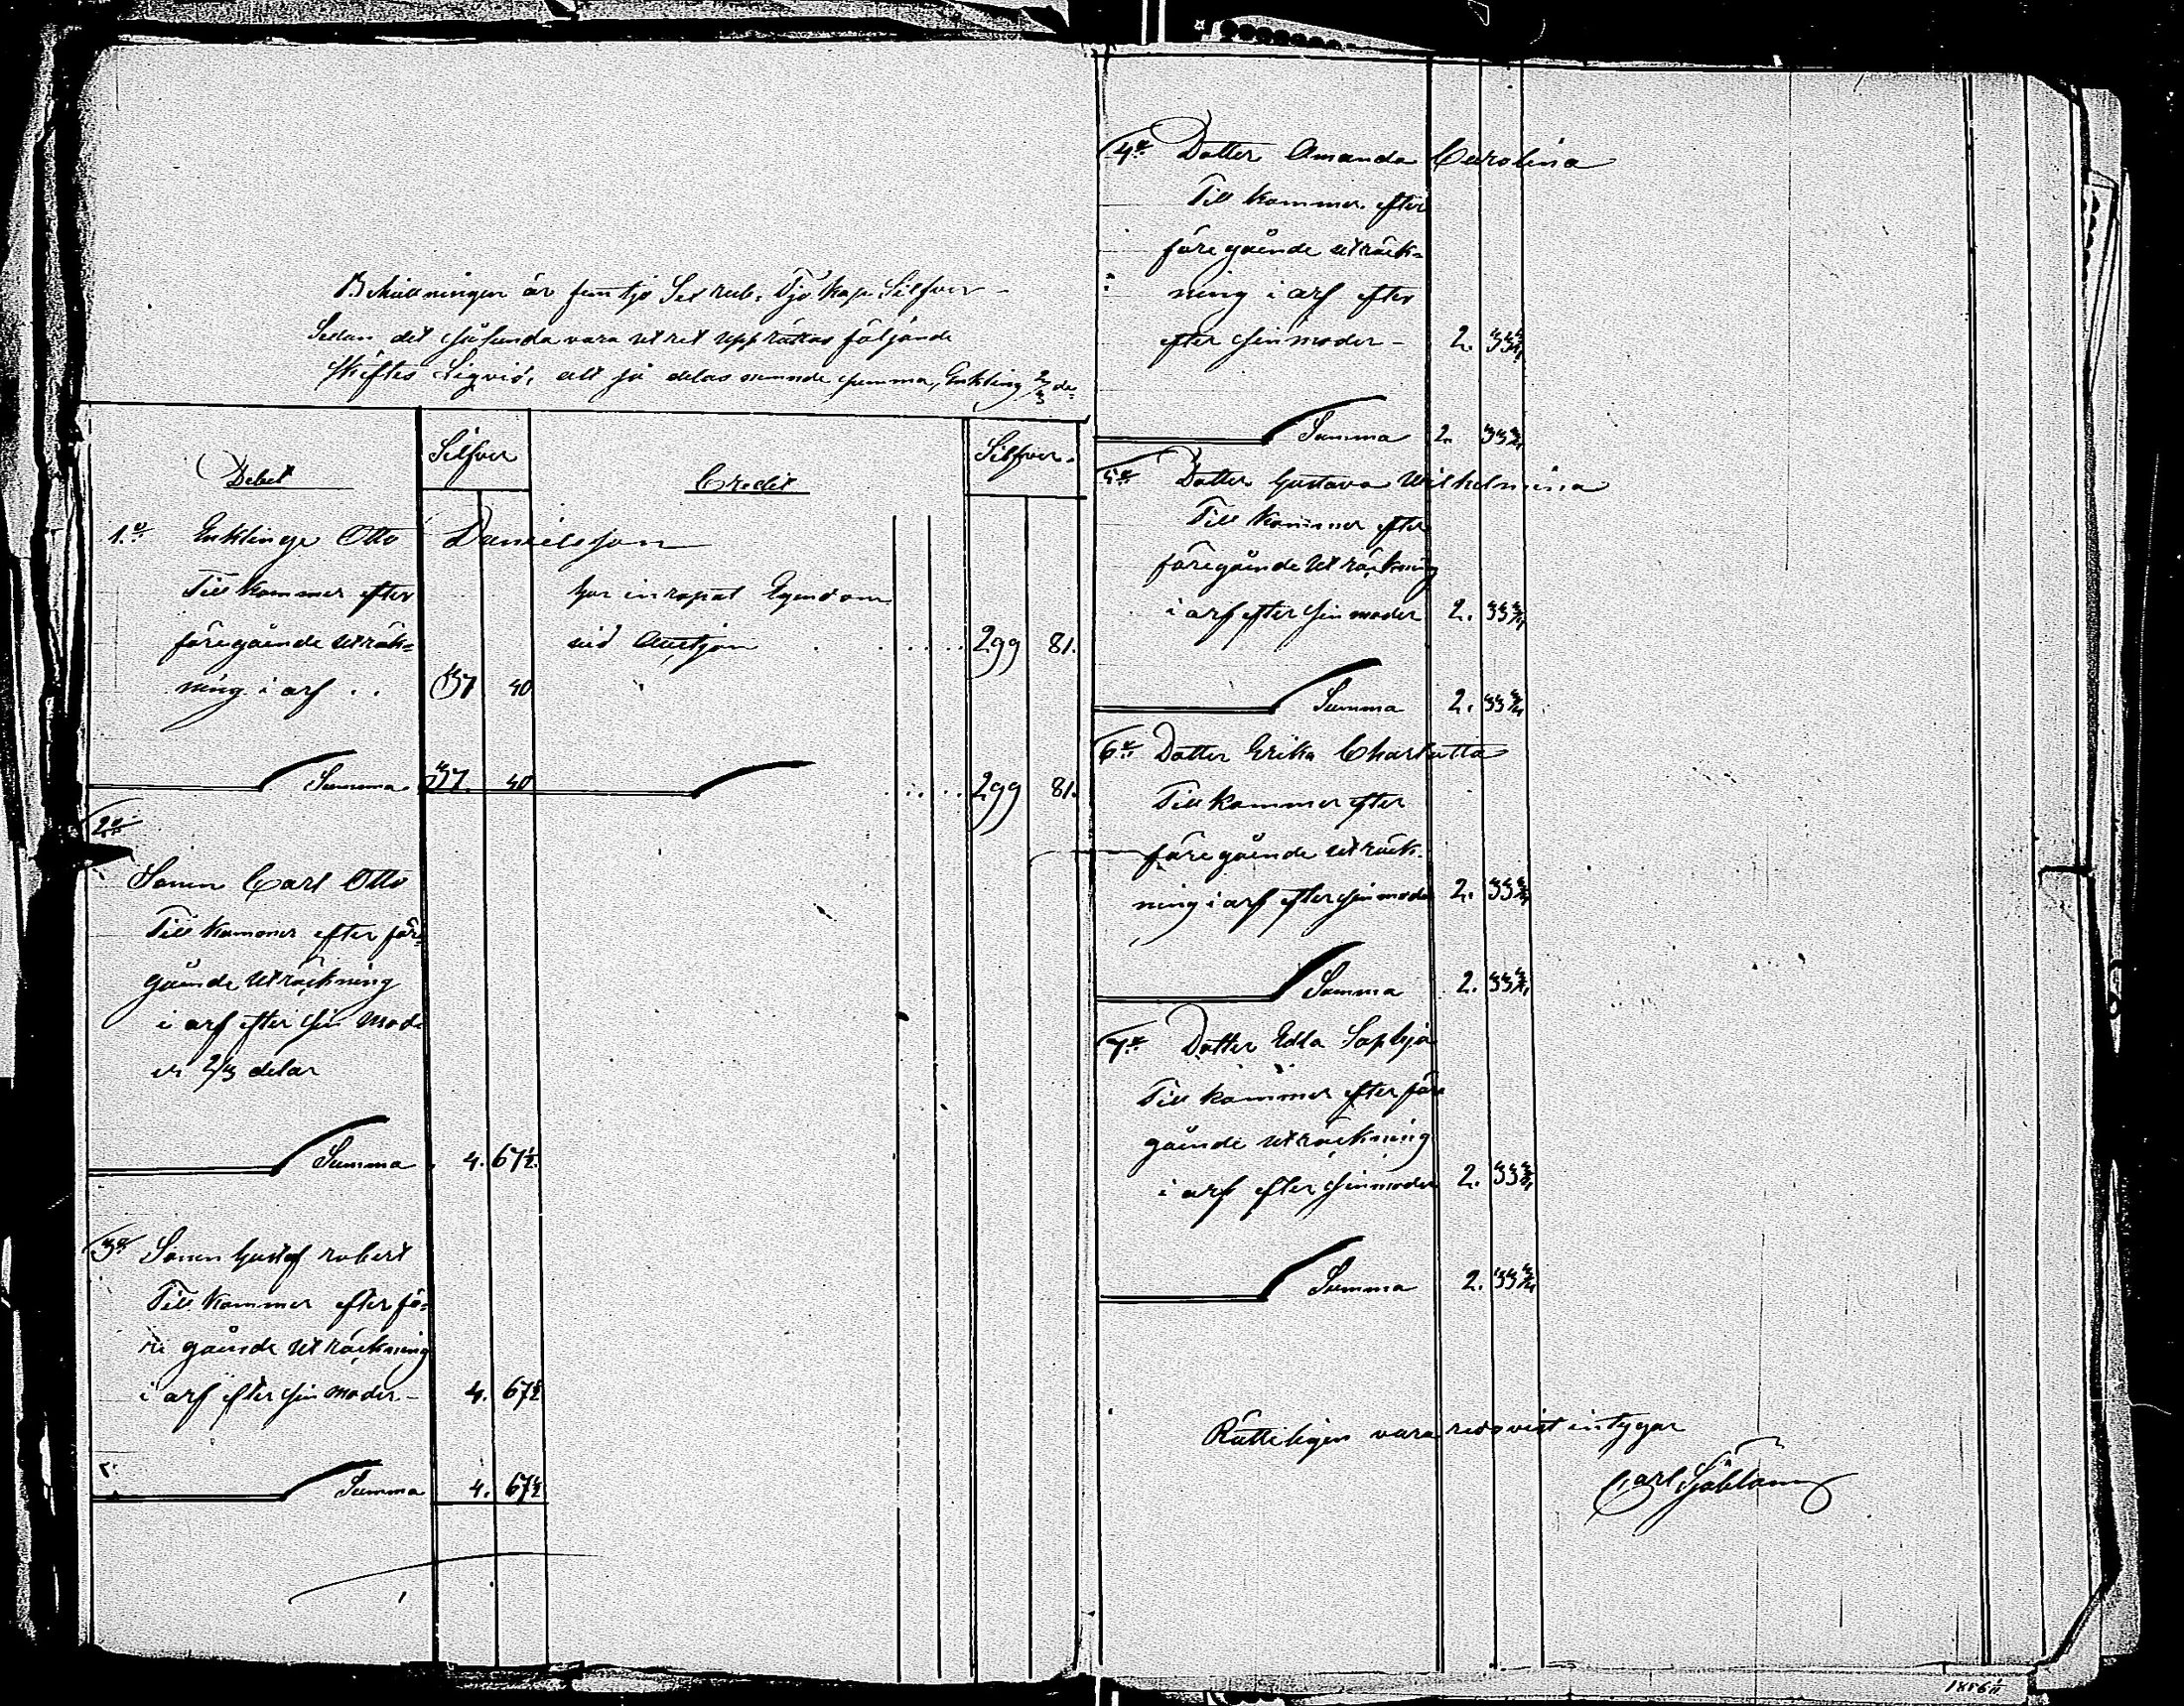 Behållningen är femtjo Sex rub. Tjo kop. Silfver
Sedan det sålunda vara utret upprättas följande
Skiftes Liqvid, att så delas numde summa, Enkling 2/3 de-
Debet
Silfver
Credit
Silfver.
1:o Enklinge Otto Danielsson
Till kommer efter
föregående uträk=
ning i arf . . 37 40
har inropat Egendom
vid Auktjon . . . . . 299 81.
Summa. 37. 40 . . . . 299 81.
2:o
Sonen Carl Otto
Till kommer efter före
gående Uträckning
i arf efter sin Mod
er 2/3 delar
Summa . 4. 67 1/2.
3:o Sonen Gustaf robert
Till kommer efter fö=
re gående Uträckning
i arf efter sin moder - 4. 67 1/2
Summa 4. 67 1/2
4:o Dotter Amanda Carolina
Till kommer efter
före gående uträck=
ning i arf efter
efter sin moder - 2. 33 3/4
Summa 2. 33 3/4
5:o Dotter Gustava Wilhelmina
Till kommer efter
föregående Uträckning
i arf efter sin moder 2. 33 3/4
Summa 2. 33 3/4
6:o Dotter Erika Charlotta
Till kommer efter
före gående uträck.
ning i arf efter sin moder 2. 33 3/4
Summa 2. 33 3/4
7:o Dotter Edla Saphja
Till kommer efter före
gående uträckning
i arf efter sin moder 2. 33 3/4
Summa 2. 33 3/4
Rätteligen vara redovist intygar
Carl Sjöblom